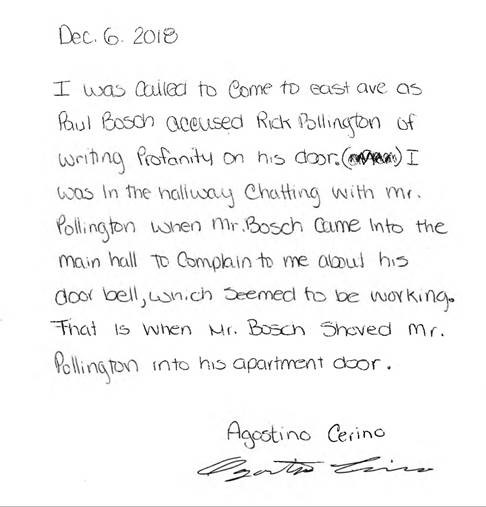 Dec. 6. 2018
I was called to come to east ave as
Paul Bosch accused Rick Pollington of
writing Profanity on his door. () I
was in the hallway chatting with mr.
Pollington when Mr. Bosch came into the
main hall to complain to me about his
door bell, which seemed to be working.
That is when Mr. Bosch shoved Mr.
Pollington into his apartment door.
Agostino Cerino